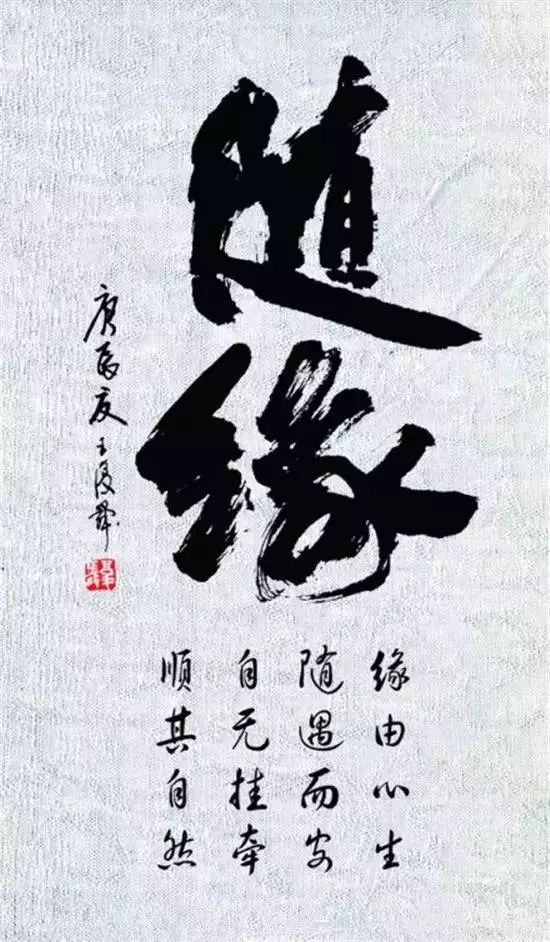 随
缘
庚辰夏王
缘由心生
随遇而安
自无挂牵
顺其自然